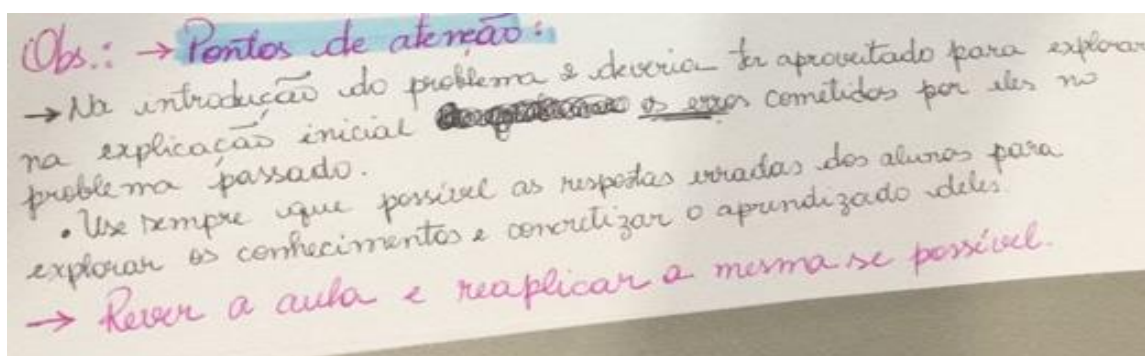 Obs.: → Pontos de atenção:
→ Na introdução do problema e deveria ter aproveitado para explorar
na explicação inicial os erros cometidos por eles no
problema passado.
• Use sempre que possível as respostas erradas dos alunos para
explorar os conhecimentos e concretizar o aprendizado deles.
→ Rever a aula e reaplicar a mesma se possível.